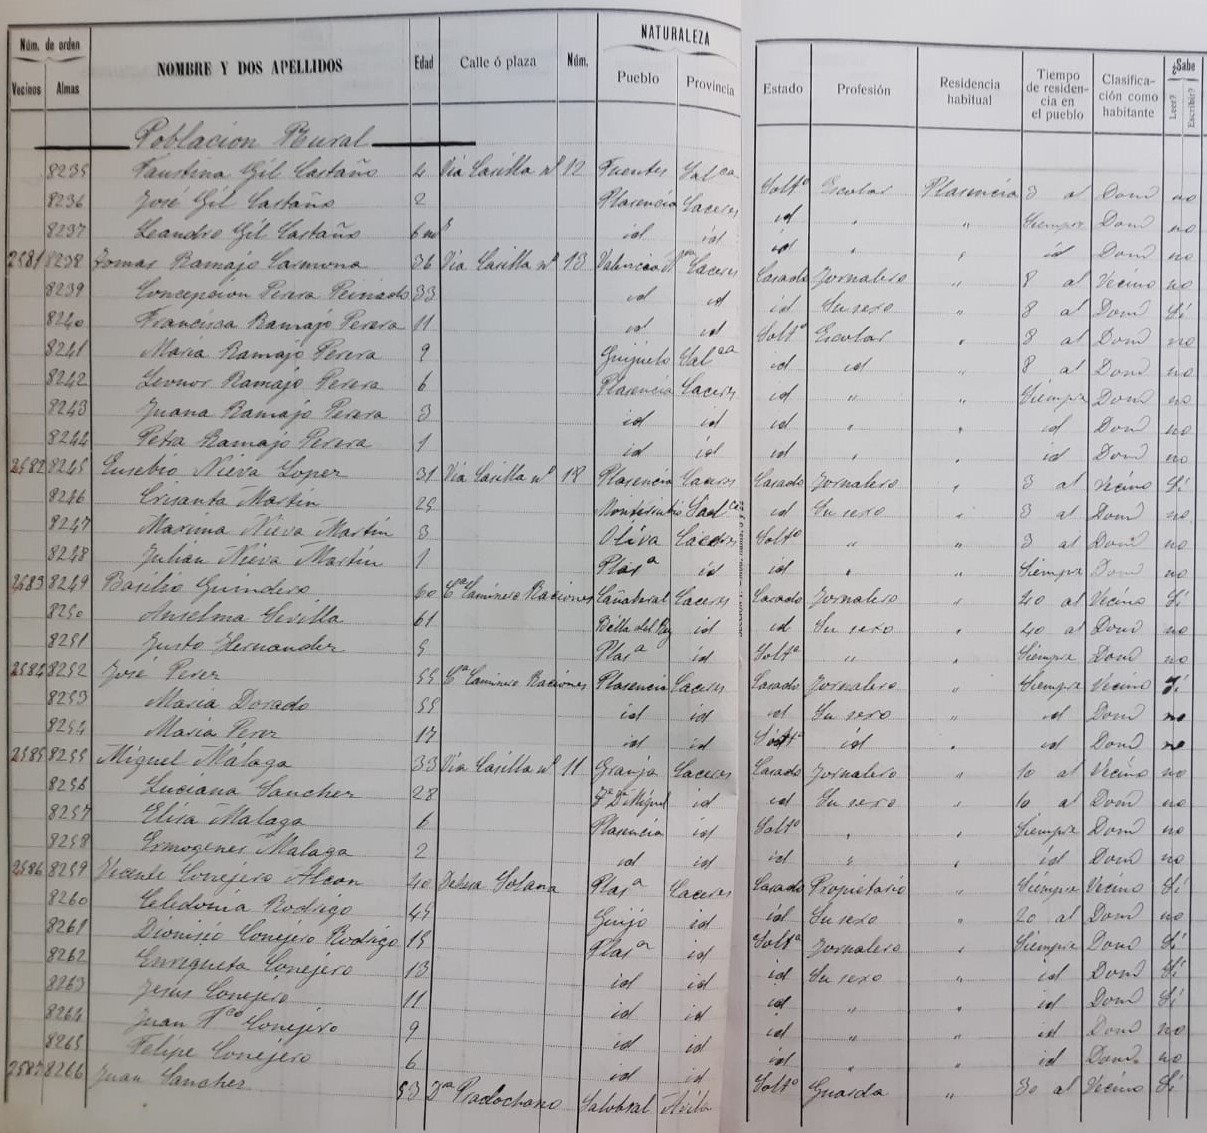 Núm. de orden NOMBRE Y DOS APELLIDOS Edad Calle ó plaza Núm. NATURALEZA Estado Profesión Residencia habitual Tiempo de residencia en el pueblo Clasificación como habitante ¿Sabe
Vecinos Almas Pueblo Provincia Leer? Escribir?
Poblacion Rural
8235 Faustina Gil Castaño 4 Via Casilla nº 12 Fuentes Salca Soltº Escolar Plasencia 3 al Domº no
8236 José Gil Castaño 2 Plasencia Caceres id " " Siempre Domº no
8237 Leandro Gil Castaño 6 ms id id id " " id Domº no
2581 8238 Tomas Ramajo Carmona 36 Via Casilla nº 13 Valencia Caceres Casado Jornalero " 8 al Vecino no
8239 Concepcion Perera Peinado 33 id id id Su sexo " 8 al Domº Si
8240 Francisca Ramajo Perera 11 id id Soltº Escolar " 8 al Domº no
8241 Maria Ramajo Perera 9 Guijuelo Salca id id " 8 al Domº no
8242 Leonor Ramajo Perera 6 Plasencia Caceres id " " Siempre Domº no
8243 Juana Ramajo Perera 3 id id id " " id Domº no
8244 Petra Ramajo Perera 1 id id id " " id Domº no
2582 8245 Eusebio Nieva Lopez 31 Via Casilla nº 18 Plasencia Caceres Casado Jornalero " 3 al Vecino Si
8246 Crisanta Martin 25 Salca id Su sexo " 3 al Domº no
8247 Maxima Nieva Martin 3 Oliva Caceres Soltº " " 3 al Domº no
8248 Julian Nieva Martin 1 Plasª id id " " Siempre Domº no
2583 8249 Basilio Guindero 60 Cª Caminero Raciones Cañaberal Caceres Casado Jornalero " 40 al Vecino Si
8250 Anselma Sevilla 61 Billa del Rey id id Su sexo " 40 al Domº no
8251 Justo Hernandez 5 Plasª id Soltº " " Siempre Domº no
2584 8252 José Perez 55 Cª Caminero Raciones Plasencia Caceres Casado Jornalero " Siempre Vecino Si
8253 Maria Dorado 55 id id id Su sexo " id Domº no
8254 Maria Perez 17 id id Soltª id " id Domº no
2585 8255 Miguel Málaga 33 Via Casilla nº 11 Granja Caceres Casado Jornalero " 10 al Vecino no
8256 Luciana Sanchez 28 id id Su sexo " 10 al Domº no
8257 Elisa Malaga 6 Plasencia id Soltº " " Siempre Domº no
8258 Ermogenes Malaga 2 id id id " " id Domº no
2586 8259 Vicente Conejero Alcon 40 Dehesa Solana Plasª Caceres Casado Propietario " Siempre Vecino Si
8260 Celedonia Rodrigo 45 Guijo id id Su sexo " 20 al Domº no
8261 Dionisio Conejero Rodrigo 15 Plasª id Soltº Jornalero " Siempre Domº Si
8262 Enriqueta Conejero 13 id id id Su sexo " id Domº Si
8263 Jesus Conejero 11 id id id " " id Domº Si
8264 Juan Fco Conejero 9 id id id " " id Domº no
8265 Felipe Conejero 6 id id id " " id Domº no
2587 8266 Juan Sanchez 53 Dª Pradochano Salobral Avila Soltº Guarda " 30 al Vecino Si